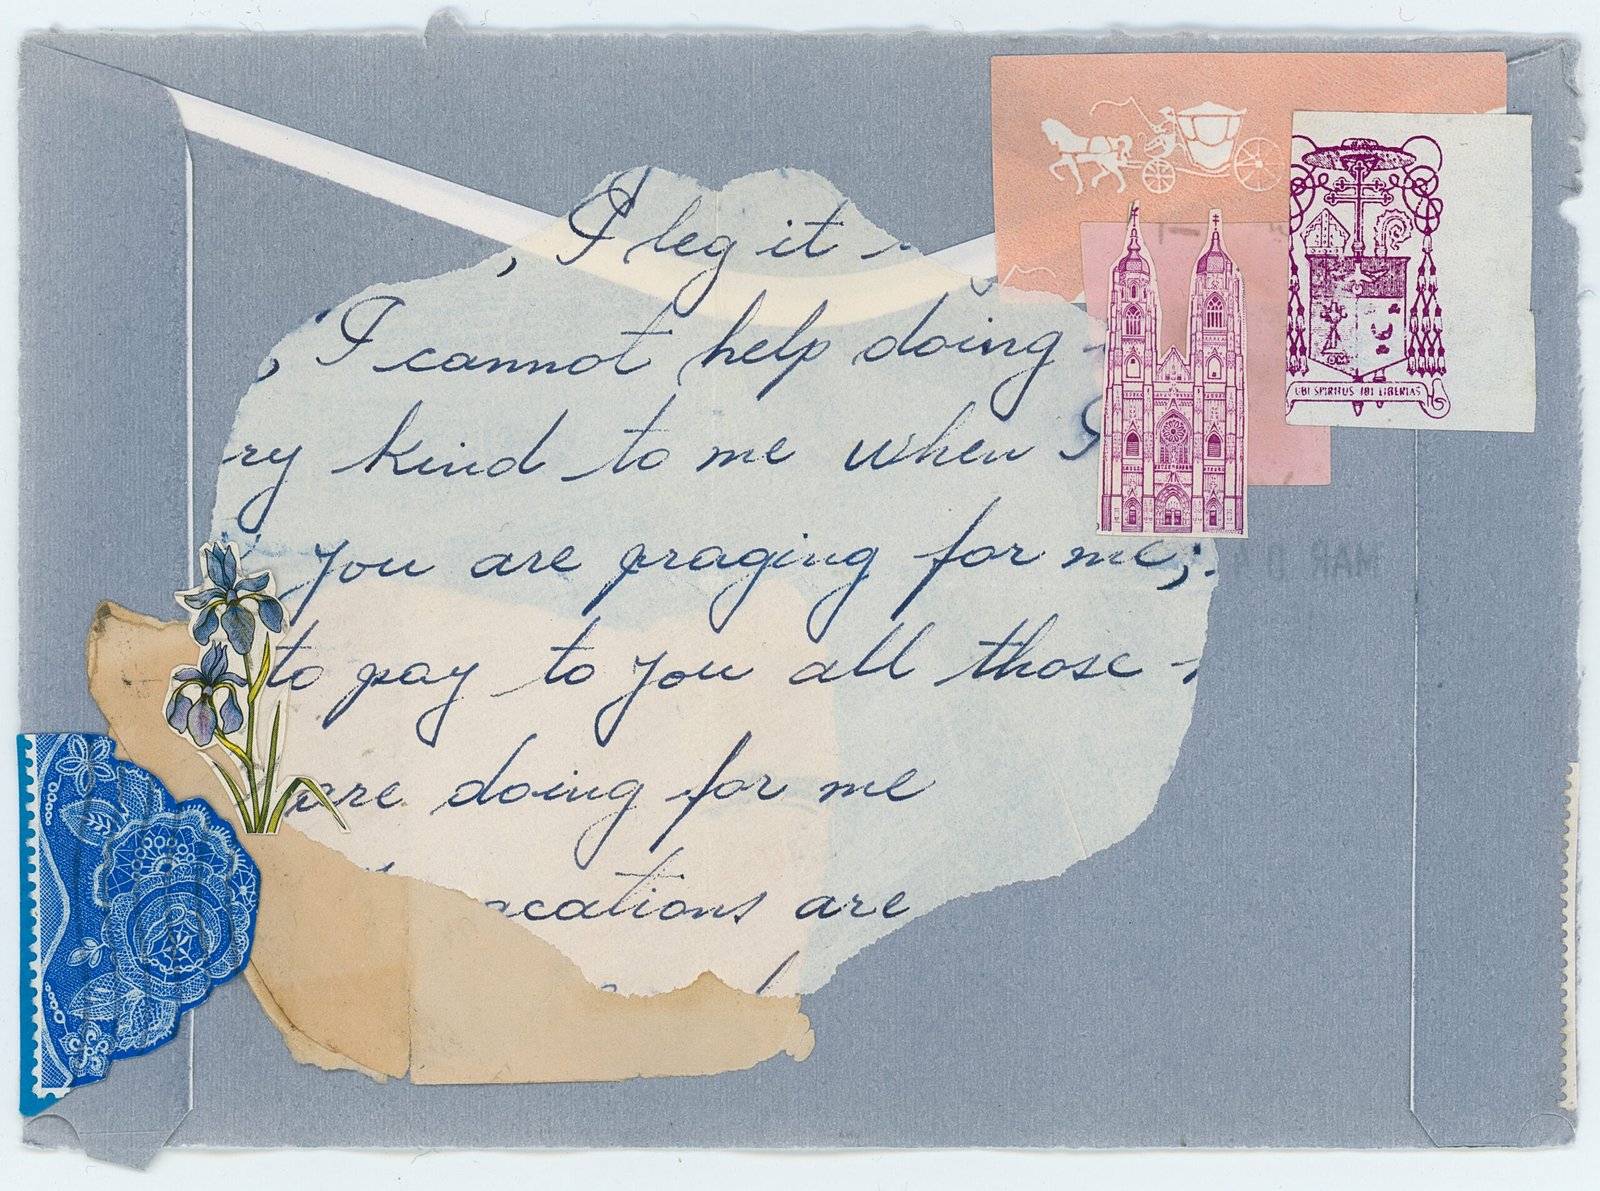 , I leg it
, I cannot help doing
ry kind to me when I
you are praging for me;.
to pay to you all those
are doing for me
acations are
UBI SPIRITUS IBI LIBERTAS